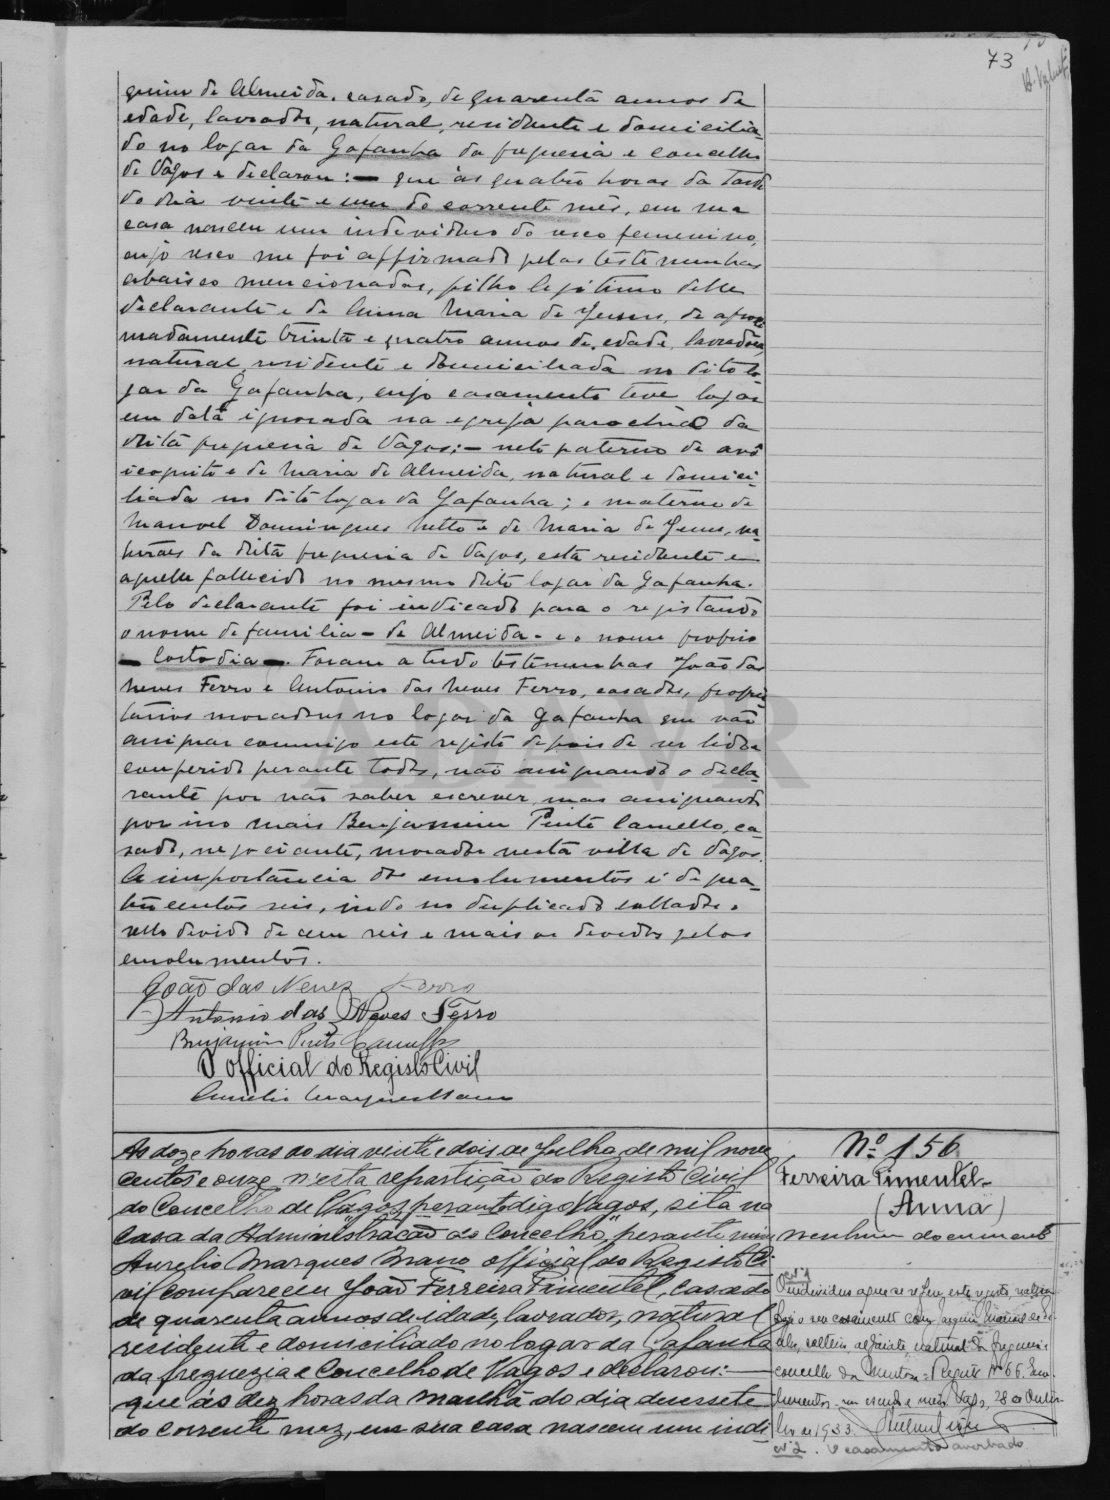 73
quim de Almeida, casado, de quarenta annos de
edade, lavrador, natural, residente e domicilia-
do no logar da Gafanha da freguesia e concelho
de Vagos e declarou: — que ás quatro horas da tarde
do dia vinte e um do corrente mês, em sua
casa nasceu um individuo do sexo femenino,
cujo sexo me foi affirmado pelas testemunhas
abaixo mencionadas, filho legitimo delle
declarante e de Anna Maria de Jesus, de aproxi-
madamente trinta e quatro annos de edade, lavradora,
natural, residente e domiciliada no dito lo-
gar da Gafanha, cujo casamento teve logar
em data ignorada na egreja parochial da
dita freguesia de Vagos; — neto paterno de avô
incognito e de Maria de Almeida, natural e domici-
liada no dito logar da Gafanha; e materno de
Manoel Domingues Netto e de Maria de Jesus, na-
turaes da dita freguesia de Vagos, esta residente e
aquelle fallecido no mesmo dito logar da Gafanha.
Pelo declarante foi indicado para o registando
o nome de familia — de Almeida — e o nome proprio
— Custodia —. Foram a tudo testemunhas João das
Neves Ferro e Antonio das Neves Ferro, casados, proprie-
tarios moradores no logar da Gafanha que vão
assignar commigo este registo depois de ser lido e
conferido perante todos, não assignando o decla-
rante por não saber escrever, mas assignando
por isso mais Benjamim Pinto Camello, ca-
sado, negociante, morador nesta villa de Vagos.
A importancia dos emolumentos é de qua-
trocentos reis, indo no duplicado collado o
sello devido de cem reis e mais os devidos pelos
emolumentos.
João das Neves Ferro
Antonio das Neves Ferro
Benjamim Pinto Camello
O official do Registo Civil
Aurelio Marques Mano
As doze horas do dia vinte e dois de Julho de mil nove
centos e onze n'esta repartição do Registo Civil
do Concelho de Vagos, perante digo Vagos, sita na
casa da Administração do Concelho, perante mim
Aurelio Marques Mano official do Registo Ci
vil compareceu João Ferreira Pimentel, casado
de quarenta annos de idade, lavrador, natural
residente e domiciliado no logar da Gafanha
da freguezia e Concelho de Vagos e declarou: —
que ás dez horas da manhã do dia dezessete
do corrente mez, em sua casa nasceu um indi
Nº 156
Ferreira Pimentel —
(Anna)
nenhum documento
Nº 1
O individuo a que se refere este registo, realizou
hoje o seu casamento com
solteiro, natural da freguesia e
concelho de Registo Nº 66. Emo-
lumentos: um escudo e meio. Vagos, 28 de Outu-
bro de 1933.
Nº 2. O casamento averbado